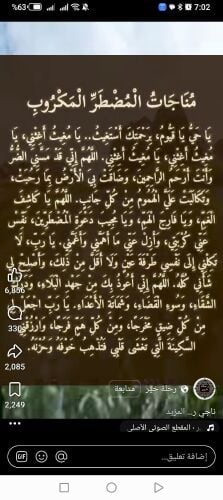 %63
7:02
مُنَاجَاتُ الْمُضْطَرِّ الْمَكْرُوبِ
يَا حَيُّ يَا قَيُّومُ، بِرَحْمَتِكَ أَسْتَغِيثُ.. يَا مُغِيثُ أَغِثْنِي، يَا
مُغِيثُ أَغِثْنِي، يَا مُغِيثُ أَغِثْنِي. اللَّهُمَّ إِنِّي قَدْ مَسَّنِيَ الضُّرُّ
وَأَنْتَ أَرْحَمُ الرَّاحِمِينَ، وَضَاقَتْ بِيَ الْأَرْضُ بِمَا رَحُبَتْ،
وَتَكَالَبَتْ عَلَيَّ الْهُمُومُ مِنْ كُلِّ جَانِبٍ. اللَّهُمَّ يَا كَاشِفَ
الْغَمِّ، وَيَا فَارِجَ الْهَمِّ، وَيَا مُجِيبَ دَعْوَةِ الْمُضْطَرِّينَ، نَفِّسْ
عَنِّي كُرْبَتِي، وَأَزِلْ عَنِّي مَا أَهَمَّنِي وَأَغَمَّنِي. يَا رَبِّ، لَا
تَكِلْنِي إِلَى نَفْسِي طَرْفَةَ عَيْنٍ وَلَا أَقَلَّ مِنْ ذَلِكَ، وَأَصْلِحْ لِي
شَأْنِي كُلَّهُ. اللَّهُمَّ إِنِّي أَعُوذُ بِكَ مِنْ جَهْدِ الْبَلَاءِ، وَدَرَكِ
الشَّقَاءِ، وَسُوءِ الْقَضَاءِ، وَشَمَاتَةِ الْأَعْدَاءِ. يَا رَبِّ اجْعَلْ لِي
مِنْ كُلِّ ضِيقٍ مَخْرَجًا، وَمِنْ كُلِّ هَمٍّ فَرَجًا، وَارْزُقْنِي
السَّكِينَةَ الَّتِي تَغْشَى قَلْبِي فَتُذْهِبُ خَوْفَهُ وَحُزْنَهُ.
330
2,085
2,249
رحلة خير
متابعة
ناجي ر... المزيد
المقطع الصوتي الأصلي
إضافة تعليق...
GIF